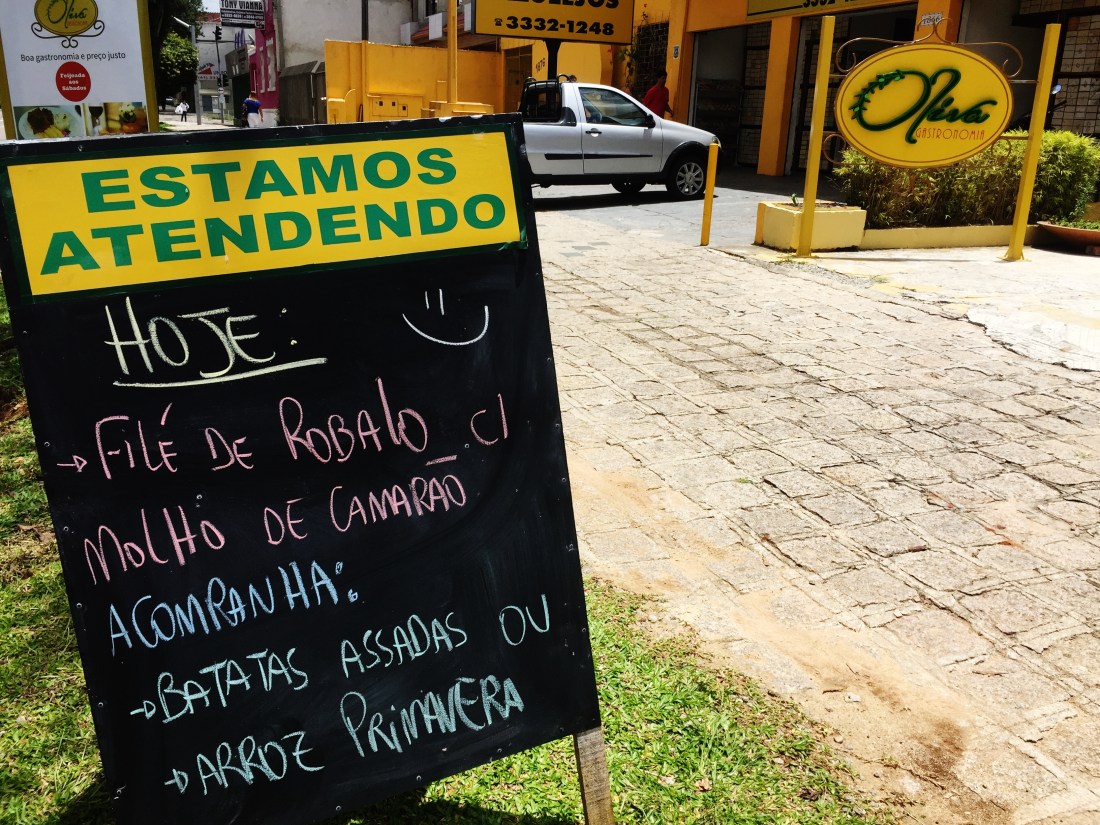 Oliva
Boa gastronomia e preço justo
Feijoada
aos
Sábados
TONY VIANNA
3332-1248
Oliva
GASTRONOMIA
ESTAMOS
ATENDENDO
HOJE:
→ FILÉ DE ROBALO c/
MOLHO DE CAMARÃO
ACOMPANHA:
→ BATATAS ASSADAS OU
→ ARROZ PRIMAVERA